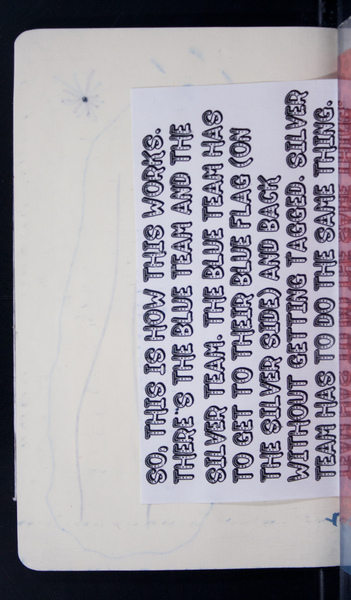 SO, THIS IS HOW THIS WORKS.
THERE'S THE BLUE TEAM AND THE
SILVER TEAM. THE BLUE TEAM HAS
TO GET TO THEIR BLUE FLAG (ON
THE SILVER SIDE) AND BACK
WITHOUT GETTING TAGGED. SILVER
TEAM HAS TO DO THE SAME THING.